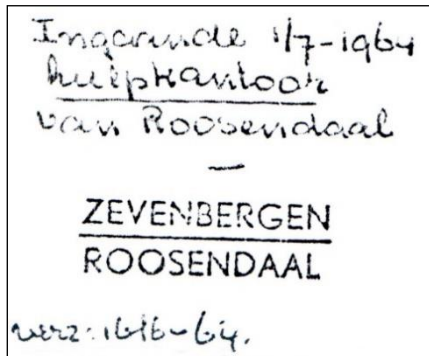 Ingaande 1/7-1964
hulpkantoor
van Roosendaal
—
ZEVENBERGEN
ROOSENDAAL
verz: 1616-64.